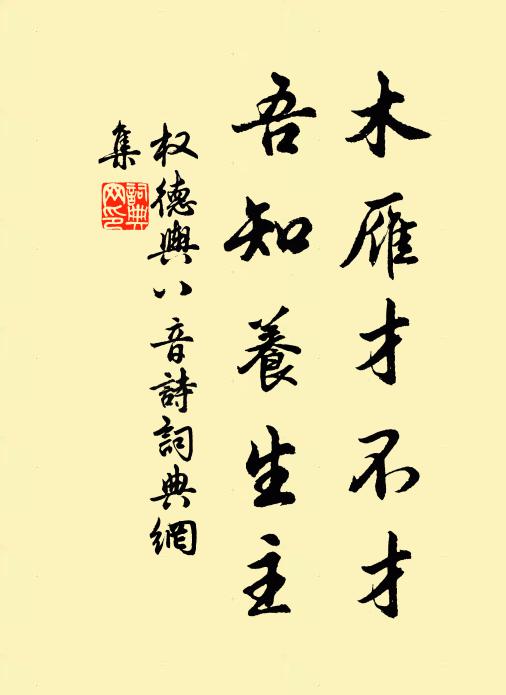 木雁才不才
吾知養生主
权德輿八音詩詞典網
集
詞典网印